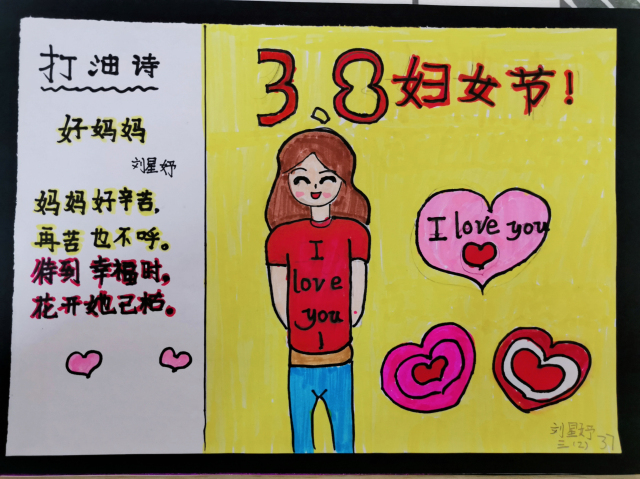 打油诗
好妈妈
刘星妤
妈妈好辛苦,
再苦也不呼。
待到幸福时,
花开她已枯。
3、8妇女节!
I love you
I
love
you
!
刘星妤
三(2) 37